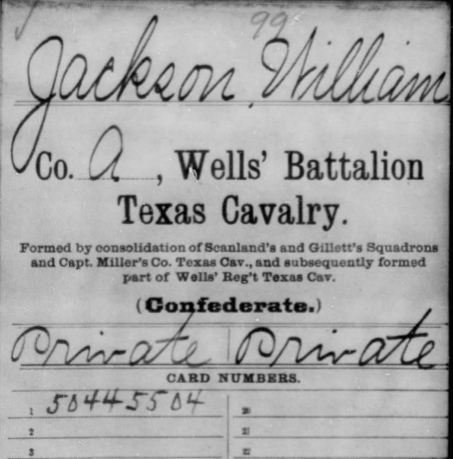 99
Jackson, William
Co. A, Wells' Battalion
Texas Cavalry.
Formed by consolidation of Scanland's and Gillett's Squadrons
and Capt. Miller's Co. Texas Cav., and subsequently formed
part of Wells' Reg't Texas Cav.
(Confederate.)
Private | Private
CARD NUMBERS.
1 50445504 20
2 21
3 22